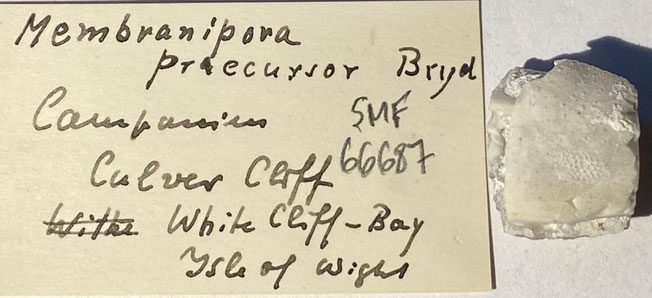 Membranipora
praecursor Bryd
Campanium SMF
Culver Cliff 66687
White Cliff-Bay
Isle of Wight